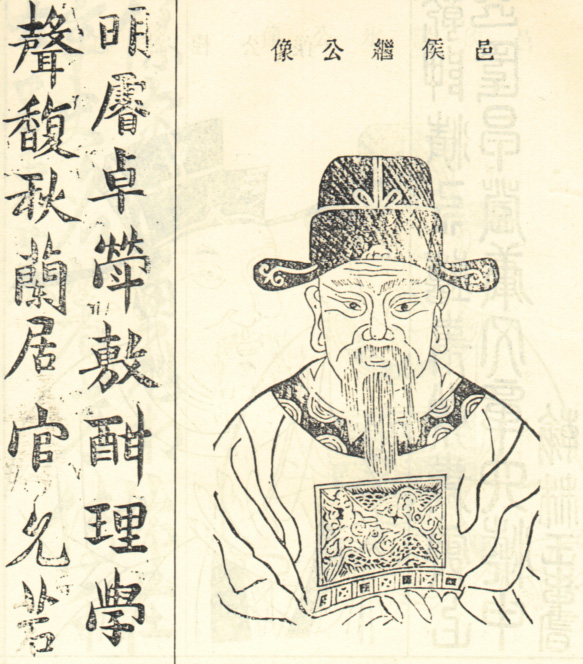 邑侯繼公像
明睿卓犖敷酣理學
聲馥秋蘭居官允